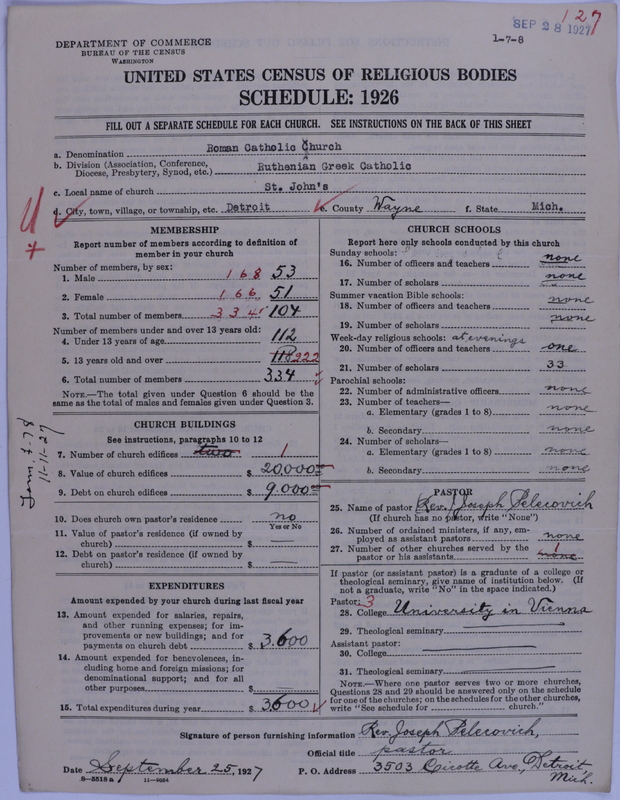 127
SEP 28 1927
1-7-8
DEPARTMENT OF COMMERCE
BUREAU OF THE CENSUS
WASHINGTON
UNITED STATES CENSUS OF RELIGIOUS BODIES
SCHEDULE: 1926
FILL OUT A SEPARATE SCHEDULE FOR EACH CHURCH. SEE INSTRUCTIONS ON THE BACK OF THIS SHEET
a. Denomination Roman Catholic Church
b. Division (Association, Conference, Diocese, Presbytery, Synod, etc.) Ruthenian Greek Catholic
c. Local name of church St. John's
d. City, town, village, or township, etc. Detroit e. County Wayne f. State Mich.
MEMBERSHIP
Report number of members according to definition of
member in your church
Number of members, by sex:
1. Male 168 53
2. Female 166 51
3. Total number of members 334 104
Number of members under and over 13 years old:
4. Under 13 years of age 112
5. 13 years old and over 118 222
6. Total number of members 334
NOTE.—The total given under Question 6 should be
same as the total of males and females given under Question 3.
CHURCH BUILDINGS
See instructions, paragraphs 10 to 12
7. Number of church edifices two 1
8. Value of church edifices $ 20,000
9. Debt on church edifices $ 9.000
10. Does church own pastor's residence no
Yes or No
11. Value of pastor's residence (if owned by
church) $
12. Debt on pastor's residence (if owned by
church) $
EXPENDITURES
Amount expended by your church during last fiscal year
13. Amount expended for salaries, repairs,
and other running expenses; for im-
provements or new buildings; and for
payments on church debt $ 3.600
14. Amount expended for benevolences, in-
cluding home and foreign missions; for
denominational support; and for all
other purposes $
15. Total expenditures during year $ 3600
CHURCH SCHOOLS
Report here only schools conducted by this church
Sunday schools:
16. Number of officers and teachers none
17. Number of scholars none
Summer vacation Bible schools:
18. Number of officers and teachers none
19. Number of scholars none
Week-day religious schools: at evenings
20. Number of officers and teachers one
21. Number of scholars 33
Parochial schools:
22. Number of administrative officers none
23. Number of teachers—
a. Elementary (grades 1 to 8) none
b. Secondary none
24. Number of scholars—
a. Elementary (grades 1 to 8) none
b. Secondary none
PASTOR
25. Name of pastor Rev. Joseph Pelecovich
(If church has no pastor, write "None")
26. Number of ordained ministers, if any, em-
ployed as assistant pastors none
27. Number of other churches served by the
pastor or his assistants none 1
If pastor (or assistant pastor) is a graduate of a college or
theological seminary, give name of institution below. (If
not a graduate, write "No" in the space indicated.)
Pastor: 3
28. College University in Vienna
29. Theological seminary
Assistant pastor:
30. College
31. Theological seminary
NOTE.—Where one pastor serves two or more churches,
Questions 28 and 29 should be answered only on the schedule
for one of the churches; on the schedules for the other churches,
write "See schedule for church."
Signature of person furnishing information Rev. Joseph Pelecovich,
Official title pastor
Date September 25, 1927 P. O. Address 3503 Cicotte Ave., Detroit,
Mich.
8-5518 a 11-9024
11-11-27